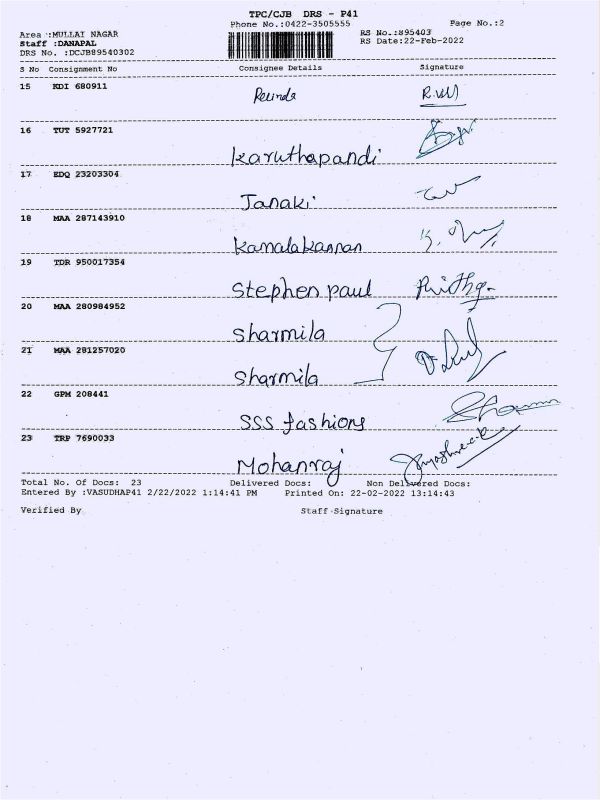 TPC/CJB DRS - P41
Phone No.:0422-3505555 Page No.:2
Area :MULLAI NAGAR RS No.:895403
Staff :DANAPAL RS Date:22-Feb-2022
DRS No. :DCJB89540302
S No Consignment No Consignee Details Signature
15 KDI 680911
16 TUT 5927721
Karuthapandi
17 EDQ 23203304
Janaki
18 MAA 287143910
Kamalakannan
19 TDR 950017354
Stephen paul
20 MAA 280984952
Sharmila
21 MAA 281257020
Sharmila
22 GPM 208441
SSS fashions
23 TRP 7690033
Mohanraj
Total No. Of Docs: 23 Delivered Docs: Non Delivered Docs:
Entered By :VASUDHAP41 2/22/2022 1:14:41 PM Printed On: 22-02-2022 13:14:43
Verified By Staff Signature